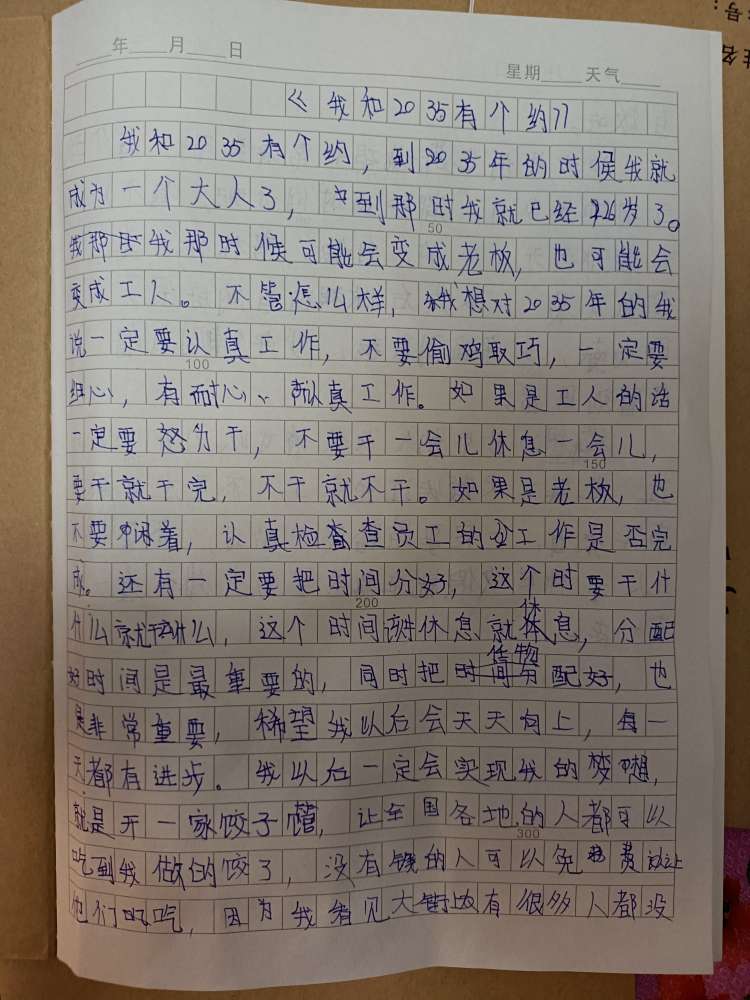 年 月 日
星期 天气
姓名
号:
《我和2035有个约》
我和2035有个约，到2035年的时侯我就
成为一个大人了，到那时我就已经26岁了。
我那时候可能会变成老板，也可能会
变成工人。不管怎么样，我想对2035年的我
说一定要认真工作，不要偷鸡取巧，一定要
细心，有耐心、认真工作。如果是工人的话
一定要努力干，不要干一会儿休息一会儿，
要干就干完，不干就不干。如果是老板，也
不要闲着，认真检查员工的工作是否完
成。还有一定要把时间分好，这个时要干什
什么就干什么，这个时间该休息就休息，分配
好时间是最重要的，同时把货物配好，也
是非常重要，希望我以后会天天向上，每一
天都有进步。我以后一定会实现我的梦想，
就是开一家饺子馆，让全国各地的人都可以
吃到我做的饺子，没有钱的人可以免费让
他们吃，因为我看见大街上有很多人都没
50
100
150
200
300